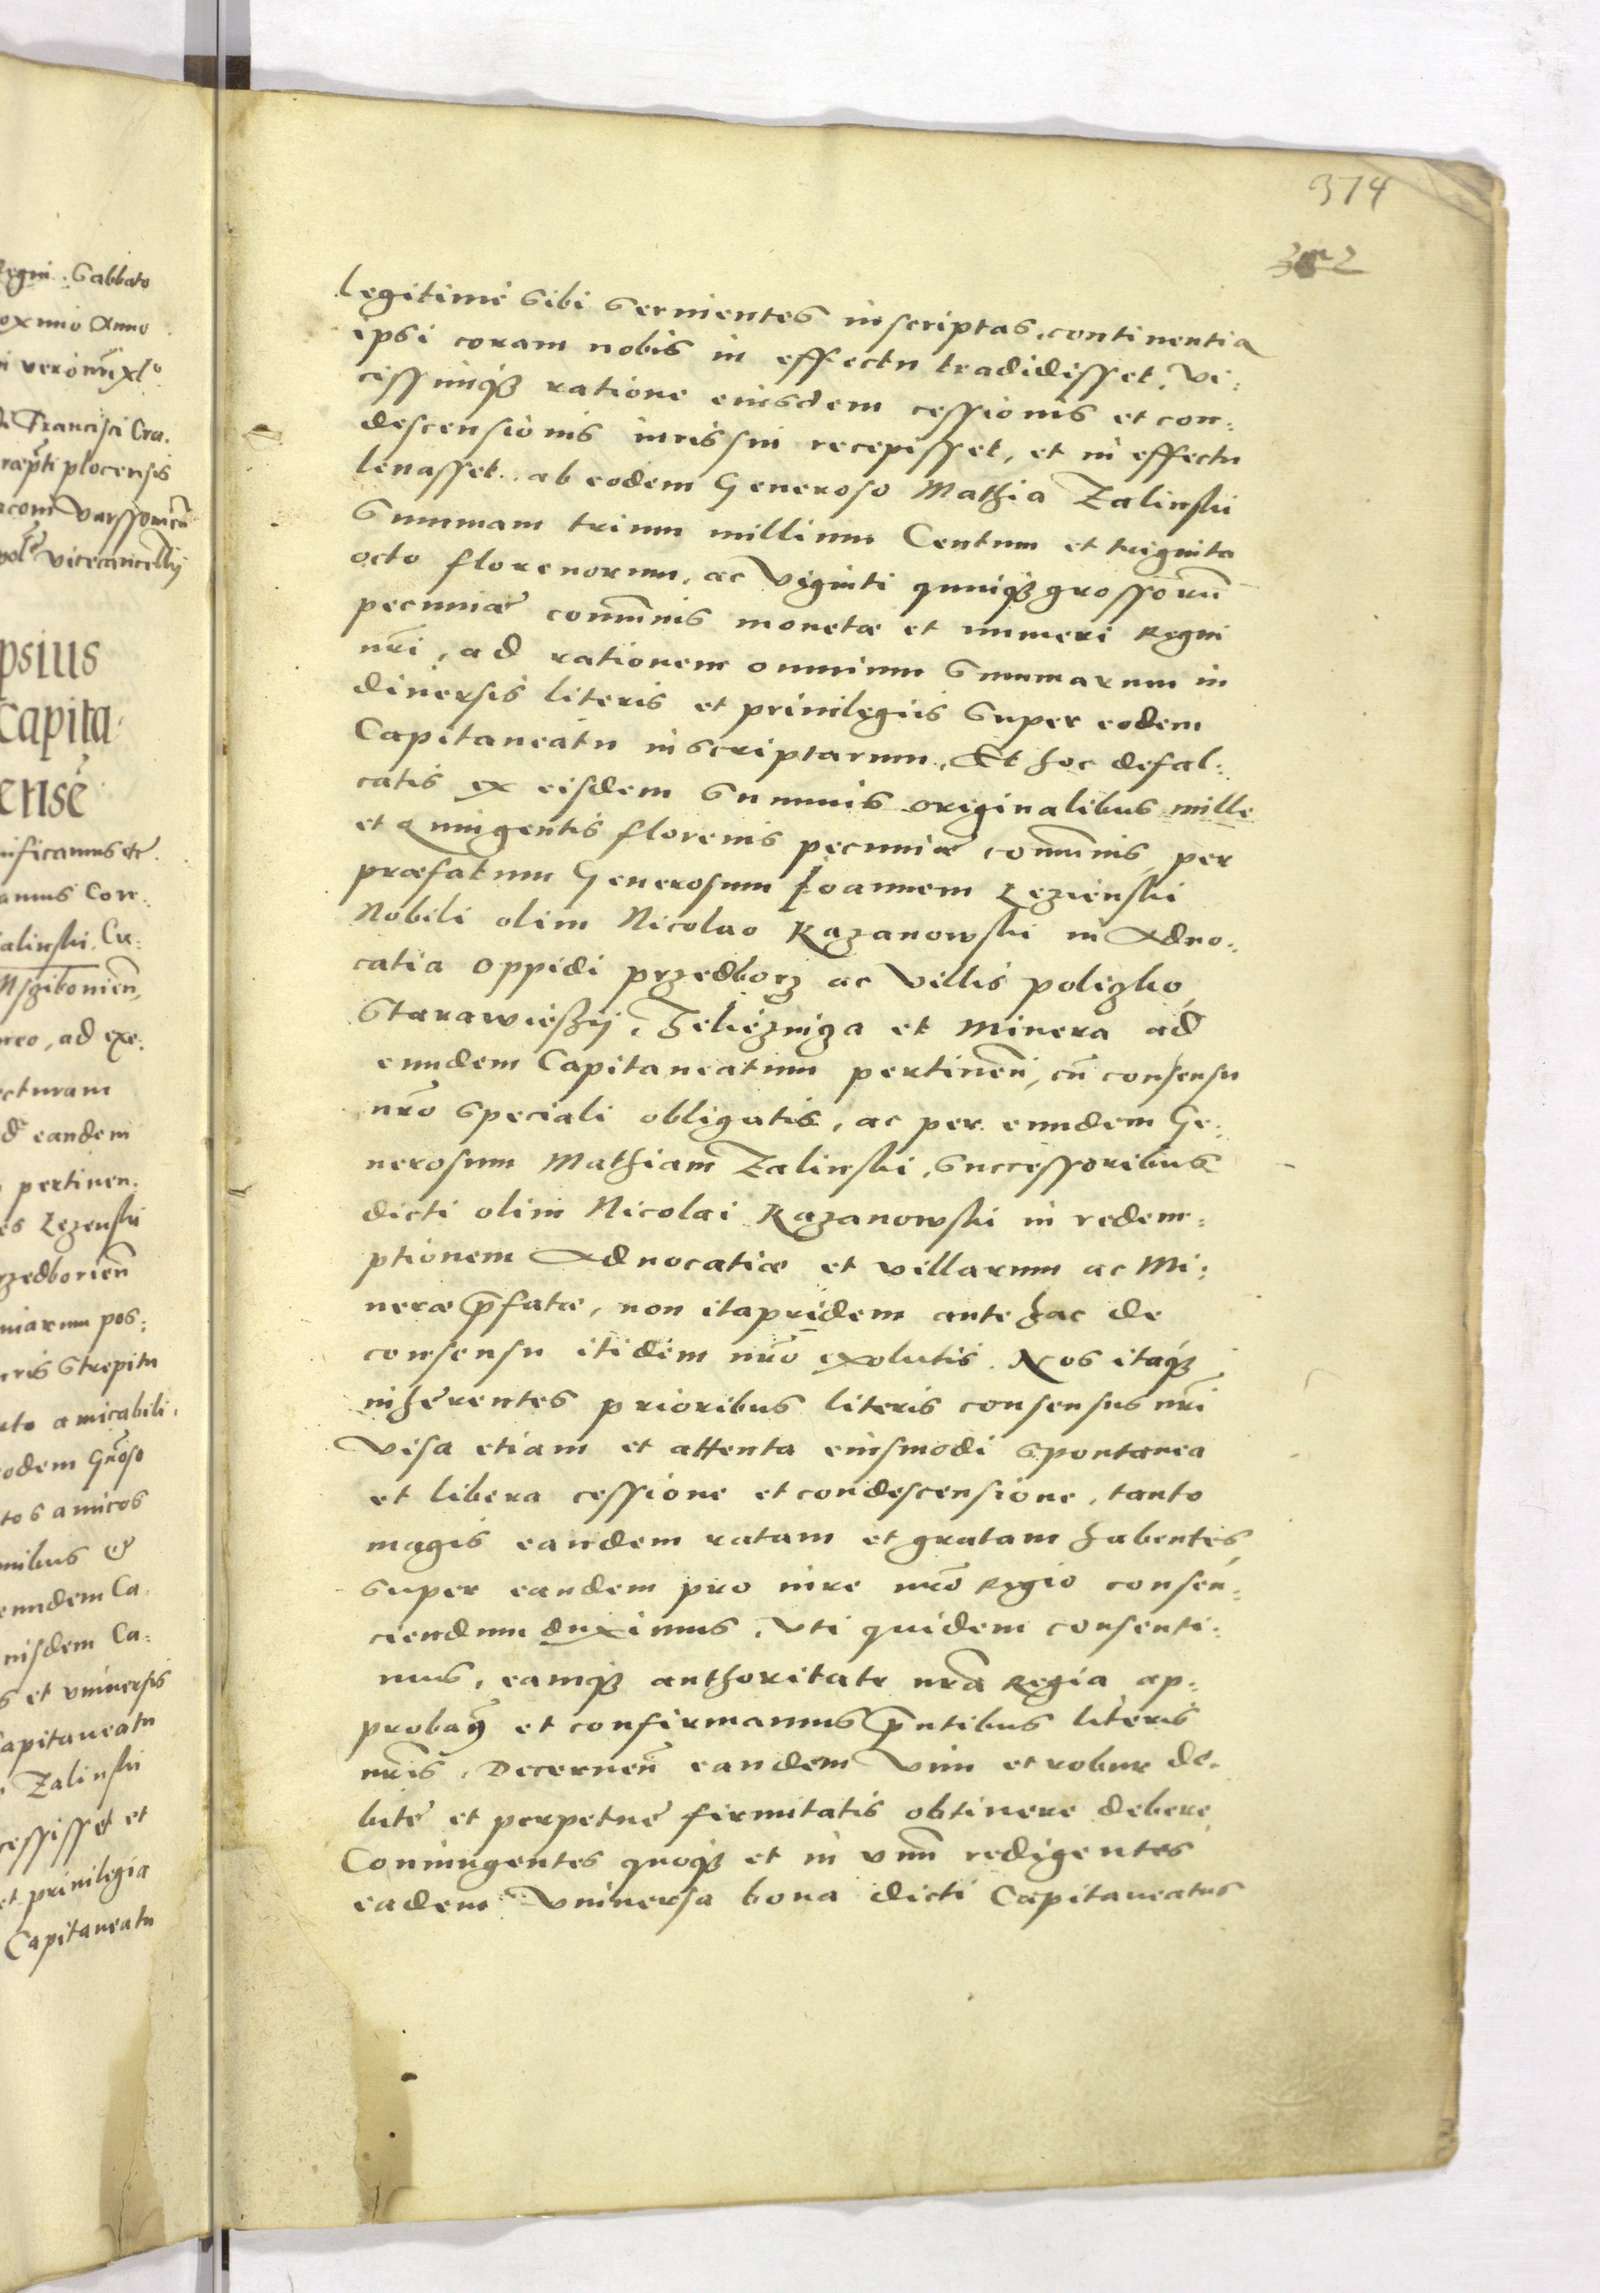 Regni. Sabbato
oximo Anno
Francisci Cra.
plocensis
vicecancellij
psius
Capita
ense
nificamus etc.
amus Con.
alinski. Ca:
meo, ad exe.
cturam
eandem
pertinen.
es Lezenski
rzedborień
niarum pos:
uris strepitu
amicabili.
eodem Gnoso
tos amicos
nibus &
eundem Ca.
nisdem Ca:
s et vniuersis
apitaneatu
Zalinski
cessisset et
et priuilegia
Capitaneatu
374
legitime sibi seruientes inscriptas, continentia
ipsi coram nobis in effectu tradidisset. Vi:
cissimq3 ratione eiusdem cessionis et con:
descensionis iuris sui recepisset, et in effectu
leuasset. ab eodem Generoso Mathia Zalinski
Summam trium millium Centum et triginta
octo florenorum, ac Viginti quinq3 grossorū
pecuniæ com̄unis monetæ et numeri Regni
nr̄i, ad rationem omnium Summarum in
diuersis literis et priuilegiis super eodem
Capitaneatu inscriptarum. Et hoc defal:
catis ex eisdem Summis originalibus mille
et Quingentis florenis pecuniæ com̄unis, per
præfatum Generosum Ioannem Lezienski
Nobili olim Nicolao Kazanowski in Aduo:
catia oppidi przedborz ac Villis policzko,
Starawieszij, Zeliezniza et Minera ad
eundem Capitaneatum pertineñ, cū consensu
nr̄o speciali obligatis, ac per eundem Ge:
nerosum Mathiam Zalinski, successoribus
dicti olim Nicolai Kazanowski in redem:
ptionem Aduocatiæ et villarum ac Mi:
neræ p̄fatæ, non itapridem ante hac de
consensu itidem nr̄o exolutis. Nos itaq3
inherentes prioribus literis consensus nr̄i
Visa etiam et attenta eiusmodi spontanea
et libera cessione et condescensione, tanto
magis eandem ratam et gratam habentes,
super eandem pro iure nr̄o Regio consen:
ciendum duximus, Vti quidem consenti:
mus, eamq3 authoritate nr̄a Regia ap:
probam9 et confirmamus p̄ntibus literis
nr̄is. Decerneñ eandem Vim et robur de:
bite et perpetue firmitatis obtinere debere,
Coniungentes quoq3 et in vnū redigentes
eadem Vniuersa bona dicti Capitaneatus